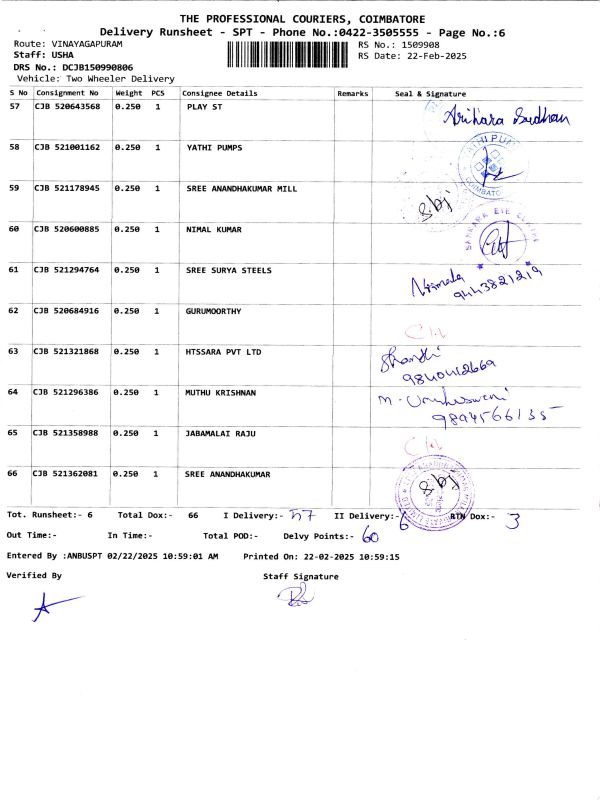 THE PROFESSIONAL COURIERS, COIMBATORE
Delivery Runsheet - SPT - Phone No.:0422-3505555 - Page No.:6
Route: VINAYAGAPURAM RS No.: 1509908
Staff: USHA RS Date: 22-Feb-2025
DRS No.: DCJB150990806
Vehicle: Two Wheeler Delivery
S No Consignment No Weight PCS Consignee Details Remarks Seal & Signature
57 CJB 520643568 0.250 1 PLAY ST
58 CJB 521001162 0.250 1 YATHI PUMPS
59 CJB 521178945 0.250 1 SREE ANANDHAKUMAR MILL
60 CJB 520600885 0.250 1 NIMAL KUMAR
SANKARA EYE
61 CJB 521294764 0.250 1 SREE SURYA STEELS Nirmala
9443821219
62 CJB 520684916 0.250 1 GURUMOORTHY
63 CJB 521321868 0.250 1 HTSSARA PVT LTD Shanthi
64 CJB 521296386 0.250 1 MUTHU KRISHNAN M. Umheswari
65 CJB 521358988 0.250 1 JABAMALAI RAJU
66 CJB 521362081 0.250 1 SREE ANANDHAKUMAR
Tot. Runsheet:- 6 Total Dox:- 66 I Delivery:- 57 II Delivery:- 6 RTN Dox:- 3
Out Time:- In Time:- Total POD:- Delvy Points:- 60
Entered By :ANBUSPT 02/22/2025 10:59:01 AM Printed On: 22-02-2025 10:59:15
Verified By Staff Signature